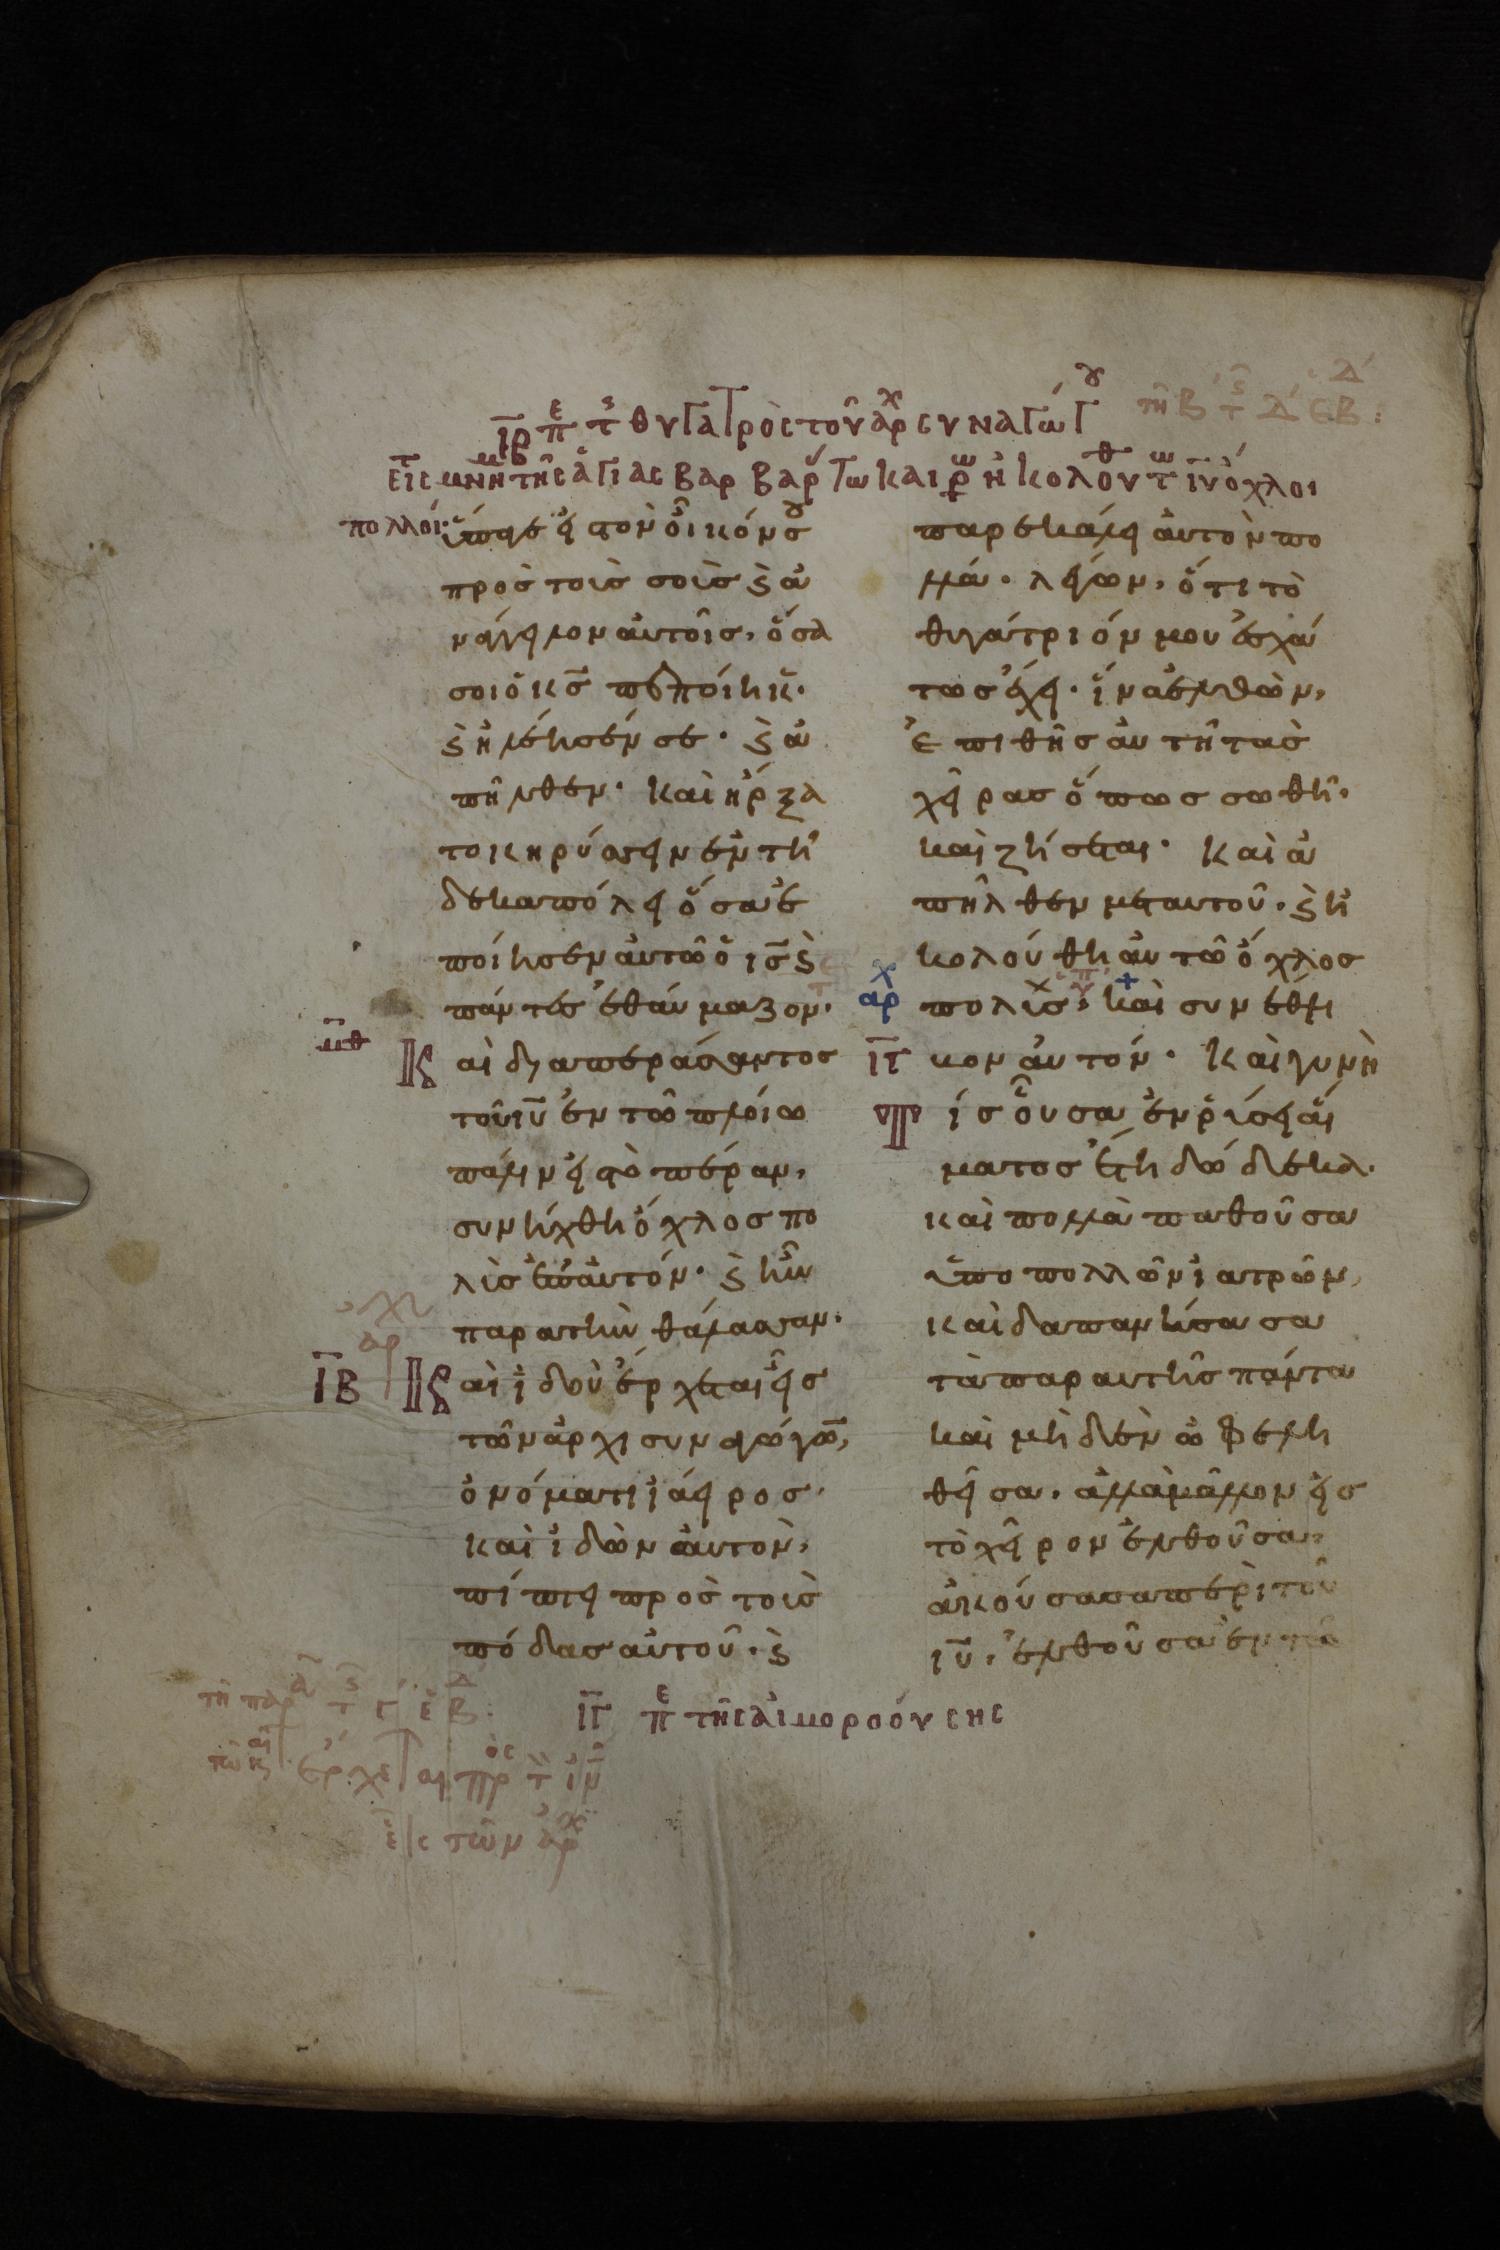 ιβ περὶ τῆς θυγατρὸς τοῦ ἀρχ συναγώγου
εἰς μνήμην τῆς ἁγίας βαρβάρ τω καιρῶ ἠκολούθ τω ιυ ὄχλοι
πολλοί·
ὕπαγε εἰς τὸν οἶκόν σου
προς τοὺς σοὺς καὶ ἀ
νάγγειλον αὐτοῖς, ὅσα
σοι ὁ κς πεποίηκε·
καὶ ἠλέησέν σε· καὶ ἀ
πῆλθεν· καὶ ἤρξα
το κηρύσσειν ἐν τῆ
δεκαπόλει ὅσα ἐ
ποίησεν αὐτῶ ὁ ις καὶ
πάντες ἐθαύμαζον·
μθ
Καὶ διαπεράσαντος
τοῦ ιυ ἐν τῶ πλοίω
πάλιν εἰς τὸ πέραν,
συνήχθη ὄχλος πο
λὺς ἐπ αὐτόν· καὶ ἦν
παρα τὴν θάλασσαν·
αρχ
ΙΒ
Καὶ ἰδοὺ ἔρχεται εἷς
τῶν ἀρχισυναγώγων,
ὀνόματι ἰάειρος·
καὶ ἰδὼν αὐτον,
πίπτει πρὸς τοὺς
πόδας αὐτοῦ· καὶ
παρεκάλει αὐτὸν πο
λλά· λέγων, ὅτι τὸ
θυγάτριόν μου ἐσχά
τως ἔχει· ἵνα ἐλθὼν,
ἐπιθῆς αὐτῆ τὰς
χεῖρας ὅπως σωθῆ·
καὶ ζήσεται· Καὶ ἀ
πῆλθεν μετ αυτοῦ· καὶ ἠ
κολούθη αὐτῶ ὄχλος
αρχ
πολὺς, καὶ συνέθλι
ΙΓ
βον αὐτόν· Καὶ γυνὴ
τις οὖσα ἐν ῥύσει αἵ
ματος ἔτη δώδεκα·
καὶ πολλὰ παθοῦσα
ὑπο πολλῶν ἰατρῶν,
καὶ δαπανήσασα
τὰ παρ αυτῆς πάντα
καὶ μὴδὲν ὠφελη
θεῖσα· ἀλλὰ μᾶλλον εἰς
τὸ χεῖρον ἐλθοῦσα,
ἀκούσασα περὶ τοῦ
ιυ, ἐλθοῦσα ἐν τῶ
ιγ περὶ τῆς αἱμορροούσης
ἔρχεται πρὸς τ ιν
εἷς τῶν ἀρχ